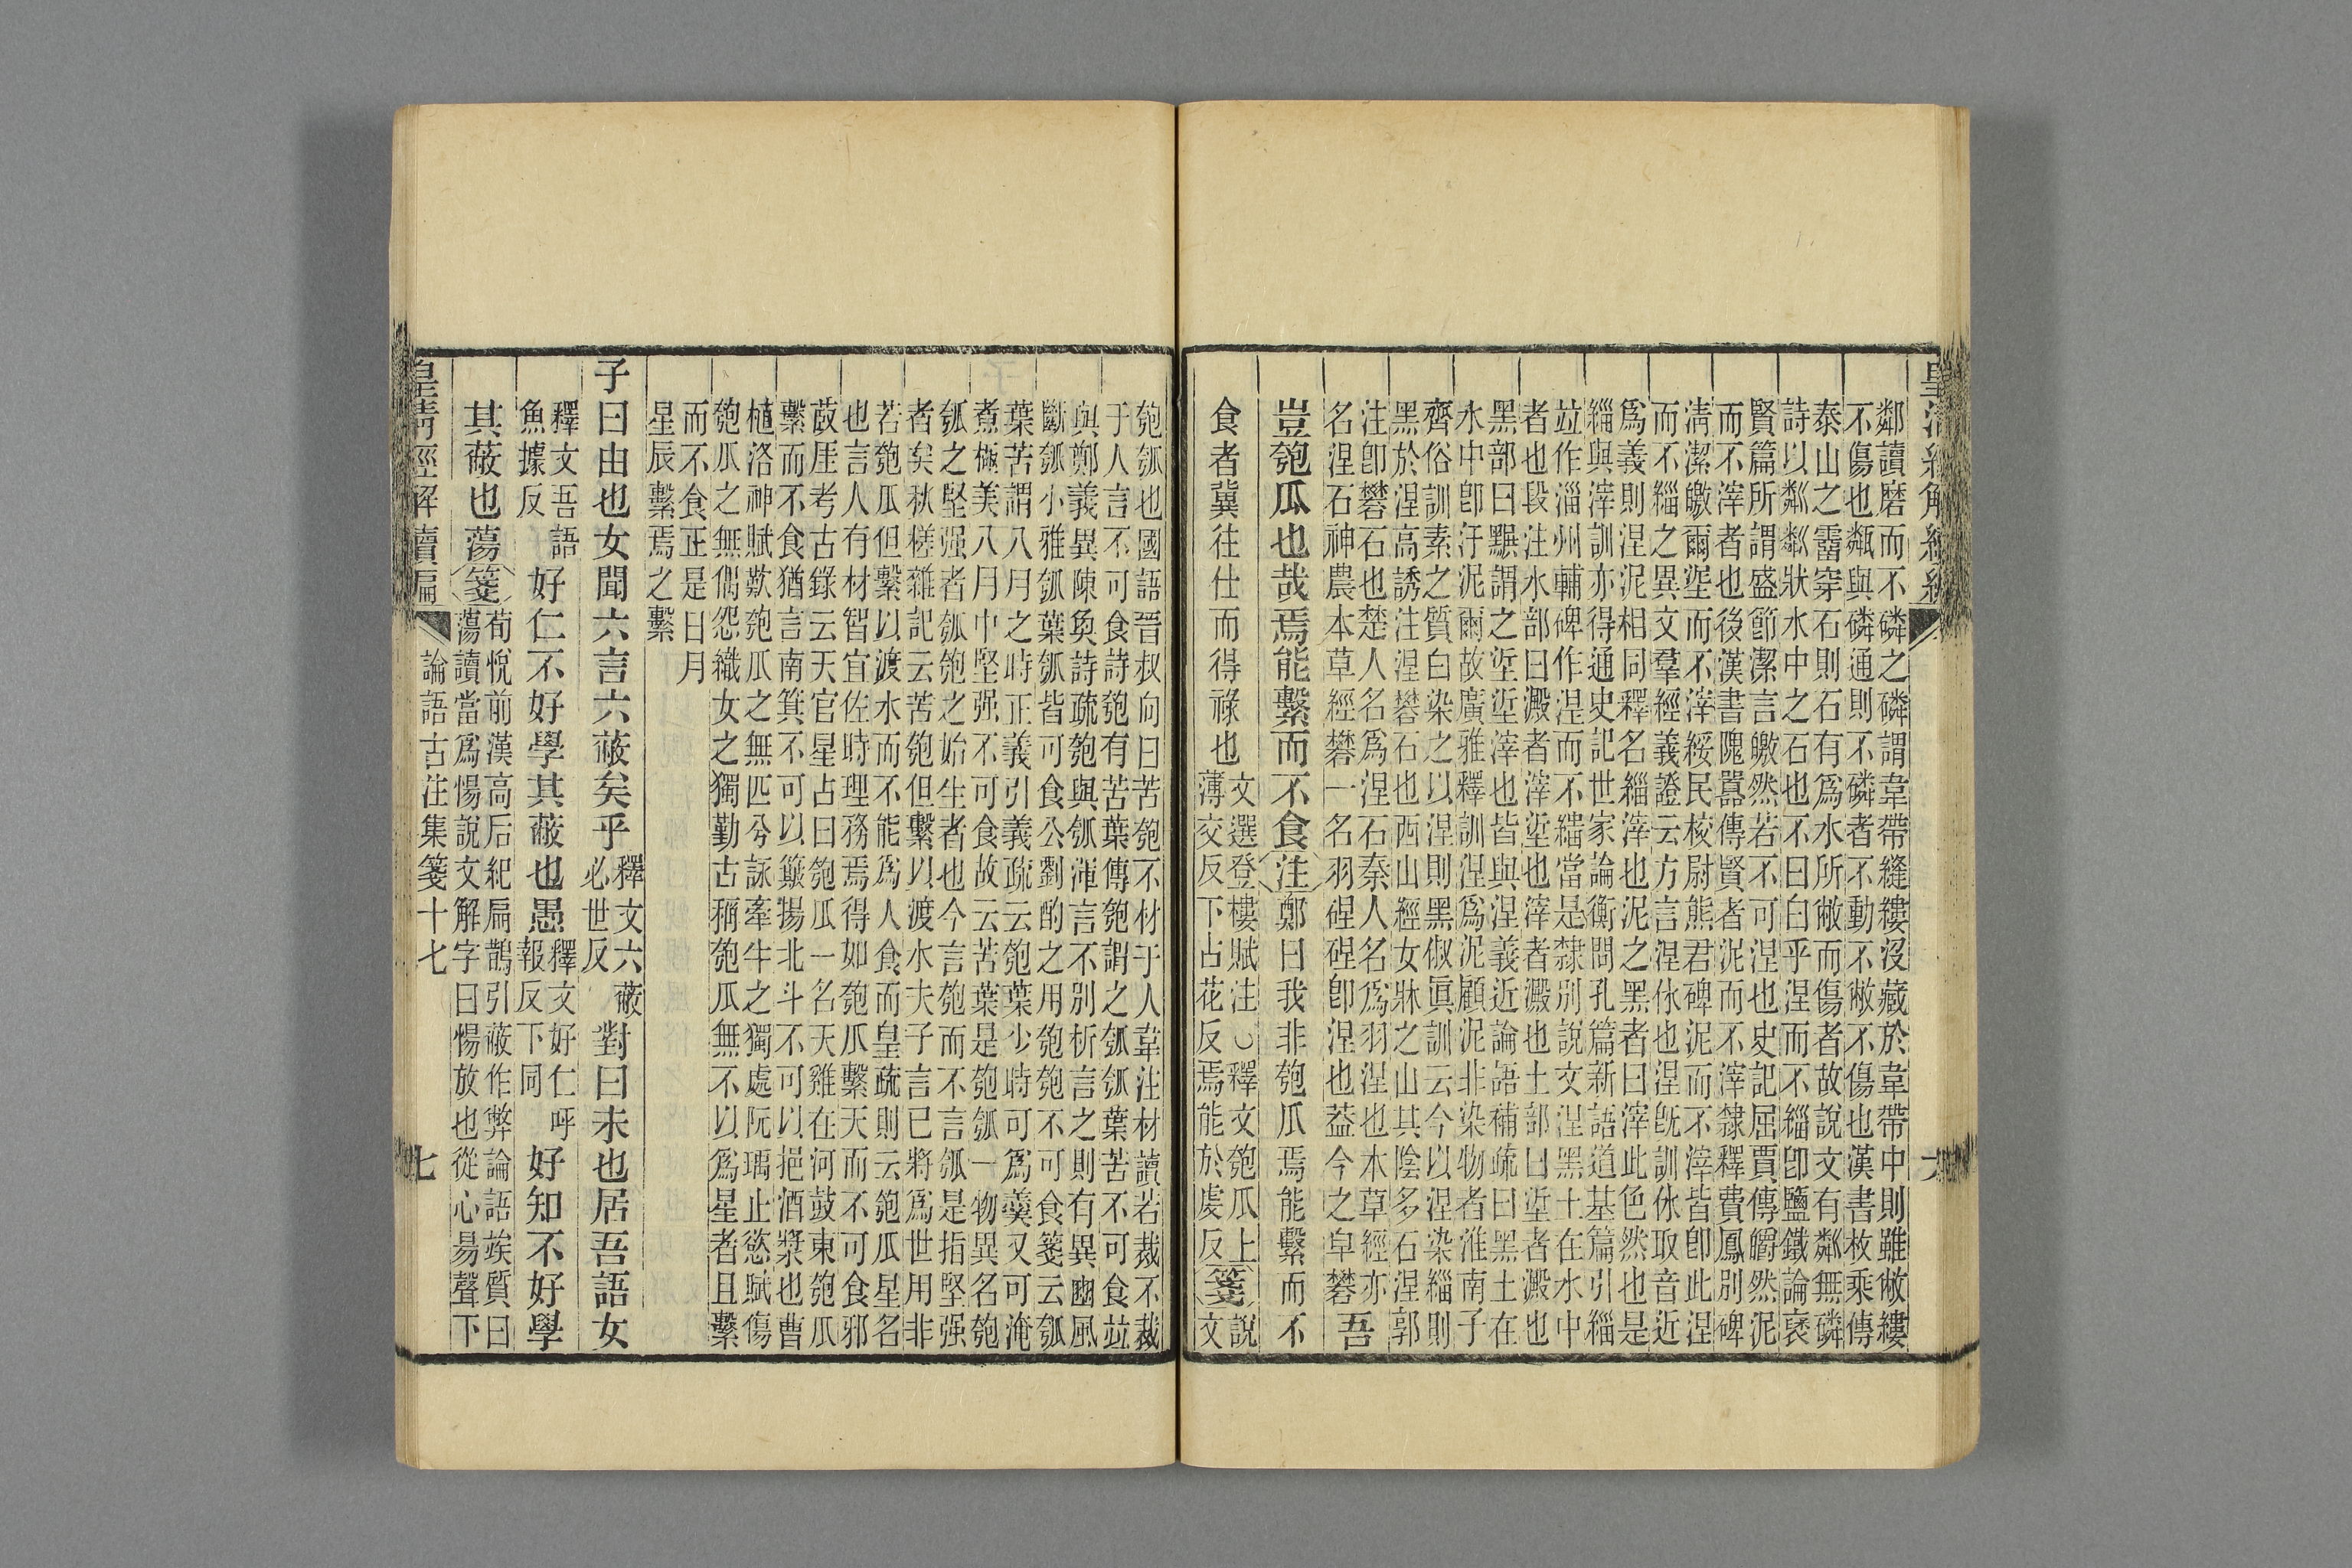 皇清經解續編
鄰讀磨而不磷之磷謂韋帶縫縷沒藏於韋帶中則雖敝縷
不傷也甐與磷通則不磷者不動不敝不傷也漢書枚乘傳
泰山之霤穿石則石有爲水所敝而傷者故說文有鄰無磷
詩以粼粼狀水中之石也不曰白乎涅而不緇卽鹽鐵論褒
賢篇所謂盛節潔言皦然若不可涅也史記屈賈傳皭然泥
而不滓者也後漢書隗囂傳賢者泥而不滓隸釋費鳳別碑
淸潔皦爾埿而不滓綏民校尉熊君碑泥而不滓皆卽此涅
而不緇之異文羣經義證云方言涅休也涅旣訓休取音近
爲義則涅泥相同釋名緇滓也泥之黑者曰滓此色然也是
緇與滓訓亦得通史記世家論衡問孔篇新語道基篇引緇
竝作淄州輔碑作涅而不繒當是隸別說文涅黑土在水中
者也段注水部曰澱者滓埿也滓者澱也土部曰埿者澱也
黑部曰黰謂之埿埿滓也皆與涅義近論語補疏曰黑土在
水中卽汙泥爾故廣雅釋訓涅爲泥顧泥非染物者淮南子
齊俗訓素之質白染之以涅則黑俶眞訓云今以涅染緇則
黑於涅高誘注涅礬石也西山經女牀之山其陰多石涅郭
注卽礬石也楚人名爲涅石秦人名爲羽涅也本草經亦
名涅石神農本草經礬一名羽碮碮卽涅也葢今之皁礬 吾
豈匏瓜也哉焉能繫而不食注鄭曰我非匏瓜焉能繫而不
食者冀往仕而得祿也文選登樓賦注○釋文匏瓜上
薄交反下占花反焉能於虔反箋說文
匏瓠也國語晉叔向曰苦匏不材于人韋注材讀若裁不裁
于人言不可食詩匏有苦葉傳匏謂之瓠瓠葉苦不可食竝
與鄭義異陳奐詩疏匏與瓠渾言不別析言之則有異豳風
斷瓠小雅瓠葉瓠皆可食公劉酌之用匏匏不可食箋云瓠
葉苦謂八月之時正義引義疏云匏葉少時可爲羹又可淹
煮極美八月中堅强不可食故云苦葉是匏瓠一物異名匏
瓠之堅强者瓠匏之始生者也今言匏而不言瓠是指堅强
者矣秋槎雜記云苦匏但繫以渡水夫子言已將爲世用非
若匏瓜但繫以渡水而不能爲人食而皇疏則云匏瓜星名
也言人有材智宜佐時理務焉得如匏瓜繫天而不可食邪
菣厓考古錄云天官星占曰匏瓜一名天雞在河鼓東匏瓜
繫而不食猶言南箕不可以簸揚北斗不可以挹酒漿也曹
植洛神賦歎匏瓜之無匹兮詠牽牛之獨處阮瑀止慾賦傷
匏瓜之無偶怨織女之獨勤古稱匏瓜無不以爲星者且繫
而不食正是日月
星辰繫焉之繫
子曰由也女聞六言六蔽矣乎釋文六蔽
必世反對曰未也居吾語女
釋文吾語
魚據反好仁不好學其蔽也愚釋文好仁呼
報反下同好知不好學
其蔽也蕩箋荀悅前漢高后紀扁鵲引蔽作弊論語竢質曰
蕩讀當爲愓說文解字曰愓放也從心昜聲下
皇淸經解續編
論語古注集箋十七
七